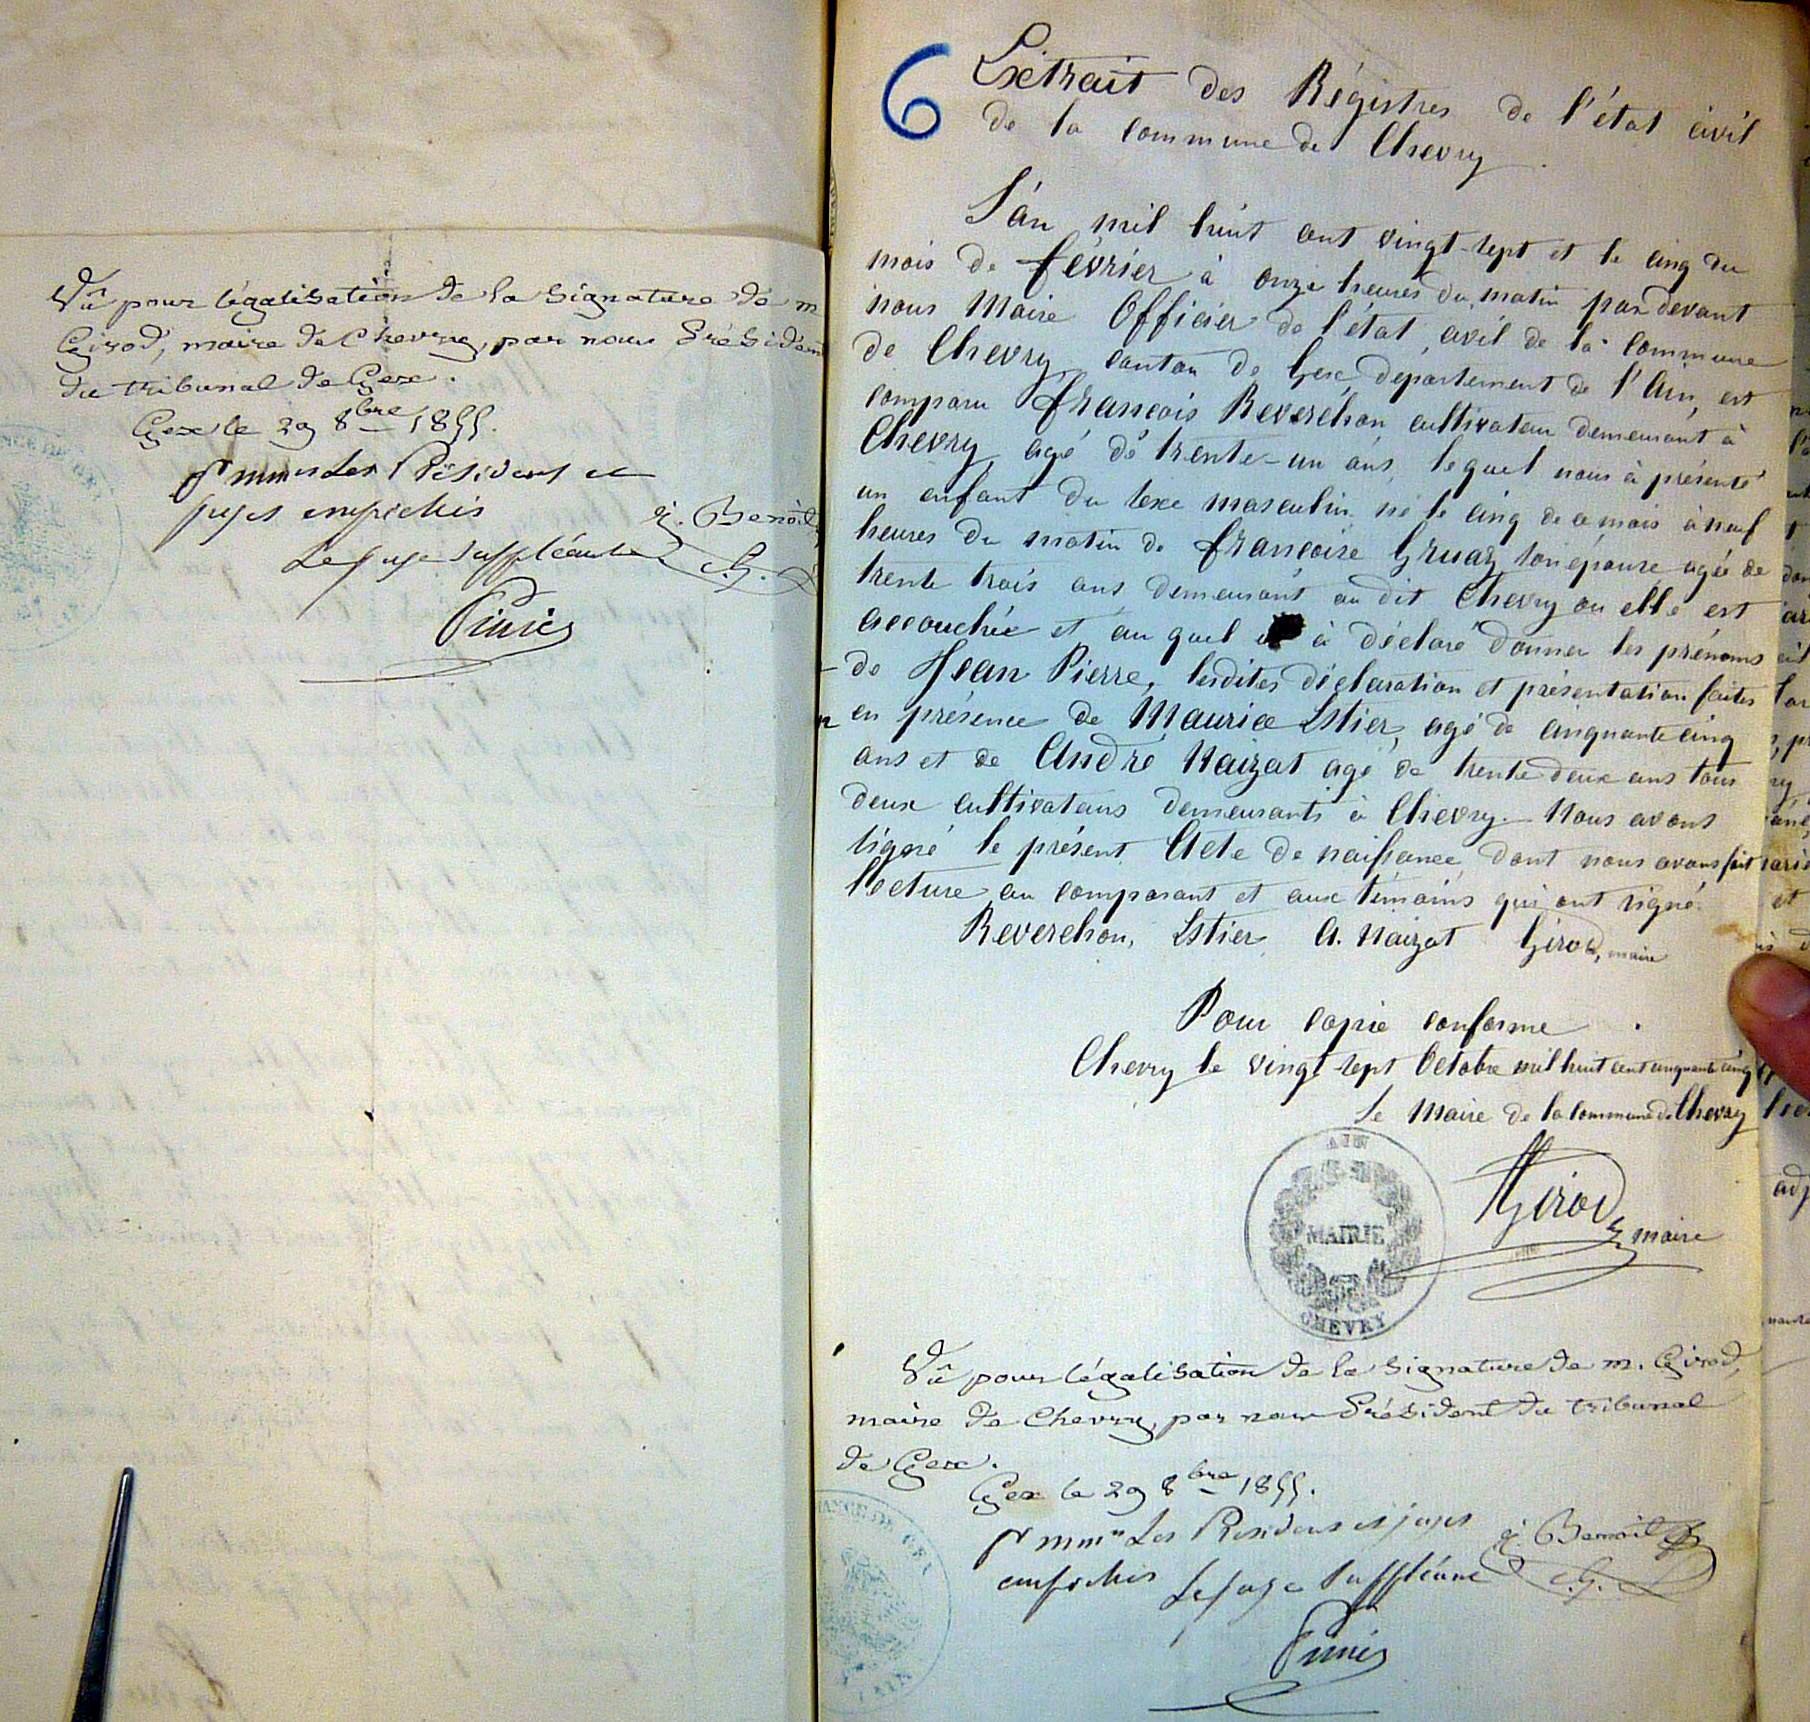 Vû pour légalisation de la signature de m
Girod, maire de Chevry, par nous Président
du tribunal de Gex.
Gex le 29 8bre 1855.
pr mmrs Les Présidents et
juges empêchés
Le juge suppléant
g. Benoit
6
Extrait des Régistres de l'état civil
de la commune de Chevry.
L'an mil huit cent vingt-sept et le cinq du
mois de février à onze heures du matin par devant
nous Maire Officier de l'état civil de la commune
de Chevry canton de Gex departement de l'Ain, est
comparu François Reverchon cultivateur demeurant à
Chevry agé de trente-un ans, lequel nous à présenté
un enfant du sexe masculin né le cinq de ce mois à neuf
heures du matin de françoise Gruaz son épouse agée de
trente trois ans demeurant au dit Chevry ou elle est
accouchée et au quel à déclaré donner les prénoms
de Jean Pierre, lesdites déclaration et présentation faites
en présence de Maurice Estier, agé de cinquante cinq
ans et de André Naizat agé de trente deux ans tous
deux cultivateurs demeurants à Chevry. Nous avons
signé le présent Acte de naissance dont nous avons fait
lecture au comparant et aux témoins qui ont signé.
Reverchon, Estier, A. Naizat Girod, maire
Pour copie conforme
Chevry le vingt-sept Octobre mil huit cent cinquante cinq
Le Maire de la Commune de Chevry
Girod, maire
AIN
MAIRIE
CHEVRY
Vû pour légalisation de la signature de m. Girod,
maire de Chevry, par nous Président du tribunal
de Gex.
Gex le 29 8bre 1855.
pr mmrs Les Présidents et juges
empêchés Le juge suppléant
g. Benoit